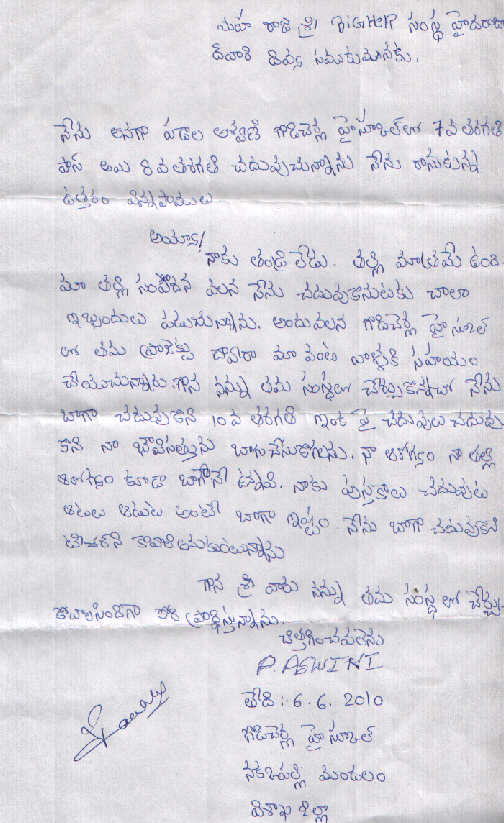 మహా రాజ శ్రీ BIGHELP సంస్థ హైదరాబాదు
దేవారి దివ్య సముఖమునకు.
నేను అనగా పడాల అశ్విణి గొడిచెర్ల హైస్కూల్‌లో 7వ తరగతి
పాస్ అయి 8వ తరగతి చదువుచున్నాను నేను రాసుకున్న
ఉత్తరం విన్నపాములు
అయ్యా!
నాకు తండ్రి లేడు. తల్లి మాత్రమే ఉంది.
మా తల్లి సంపాదన వలన నేను చదువుకొనుటకు చాలా
ఇబ్బందులు పడుచున్నాను. అందువలన గొడిచెర్ల హైస్కూల్
లో తమ ప్రాజెక్టు ద్వారా మా వంటి వాళ్లుకి సహాయం
చేయుచున్నారు. గాన నన్ను తమ సంస్థలో చేర్చుకొన్నచో నేను
బాగా చదువుకొని 10వ తరగతి ఇంక పై చదువులు చదువు
కొని నా భవిషత్తును బాగుచేసుకొగలను. నా ఆరోగ్యం నా తల్లి
ఆరోగ్యం కూడా బాగానే ఉన్నవి. నాకు పుస్తకాలు చదువుట
ఆటలు ఆడుట అంటే బాగా ఇష్టం నేను బాగా చదువుకొని
టీచర్‌ని కావాలి అనుకుంటున్నాను
గాన శ్రీ వారు నన్ను తమ సంస్థ లో చేర్చు
కోవాల్సిందిగా కోరి ప్రార్థిస్తున్నాను.
చిత్తగించవలెను
P. ASWINI
తేది : 6.6.2010
గొడిచెర్ల హైస్కూల్
నక్కపల్లి మండలం
విశాఖ జిల్లా